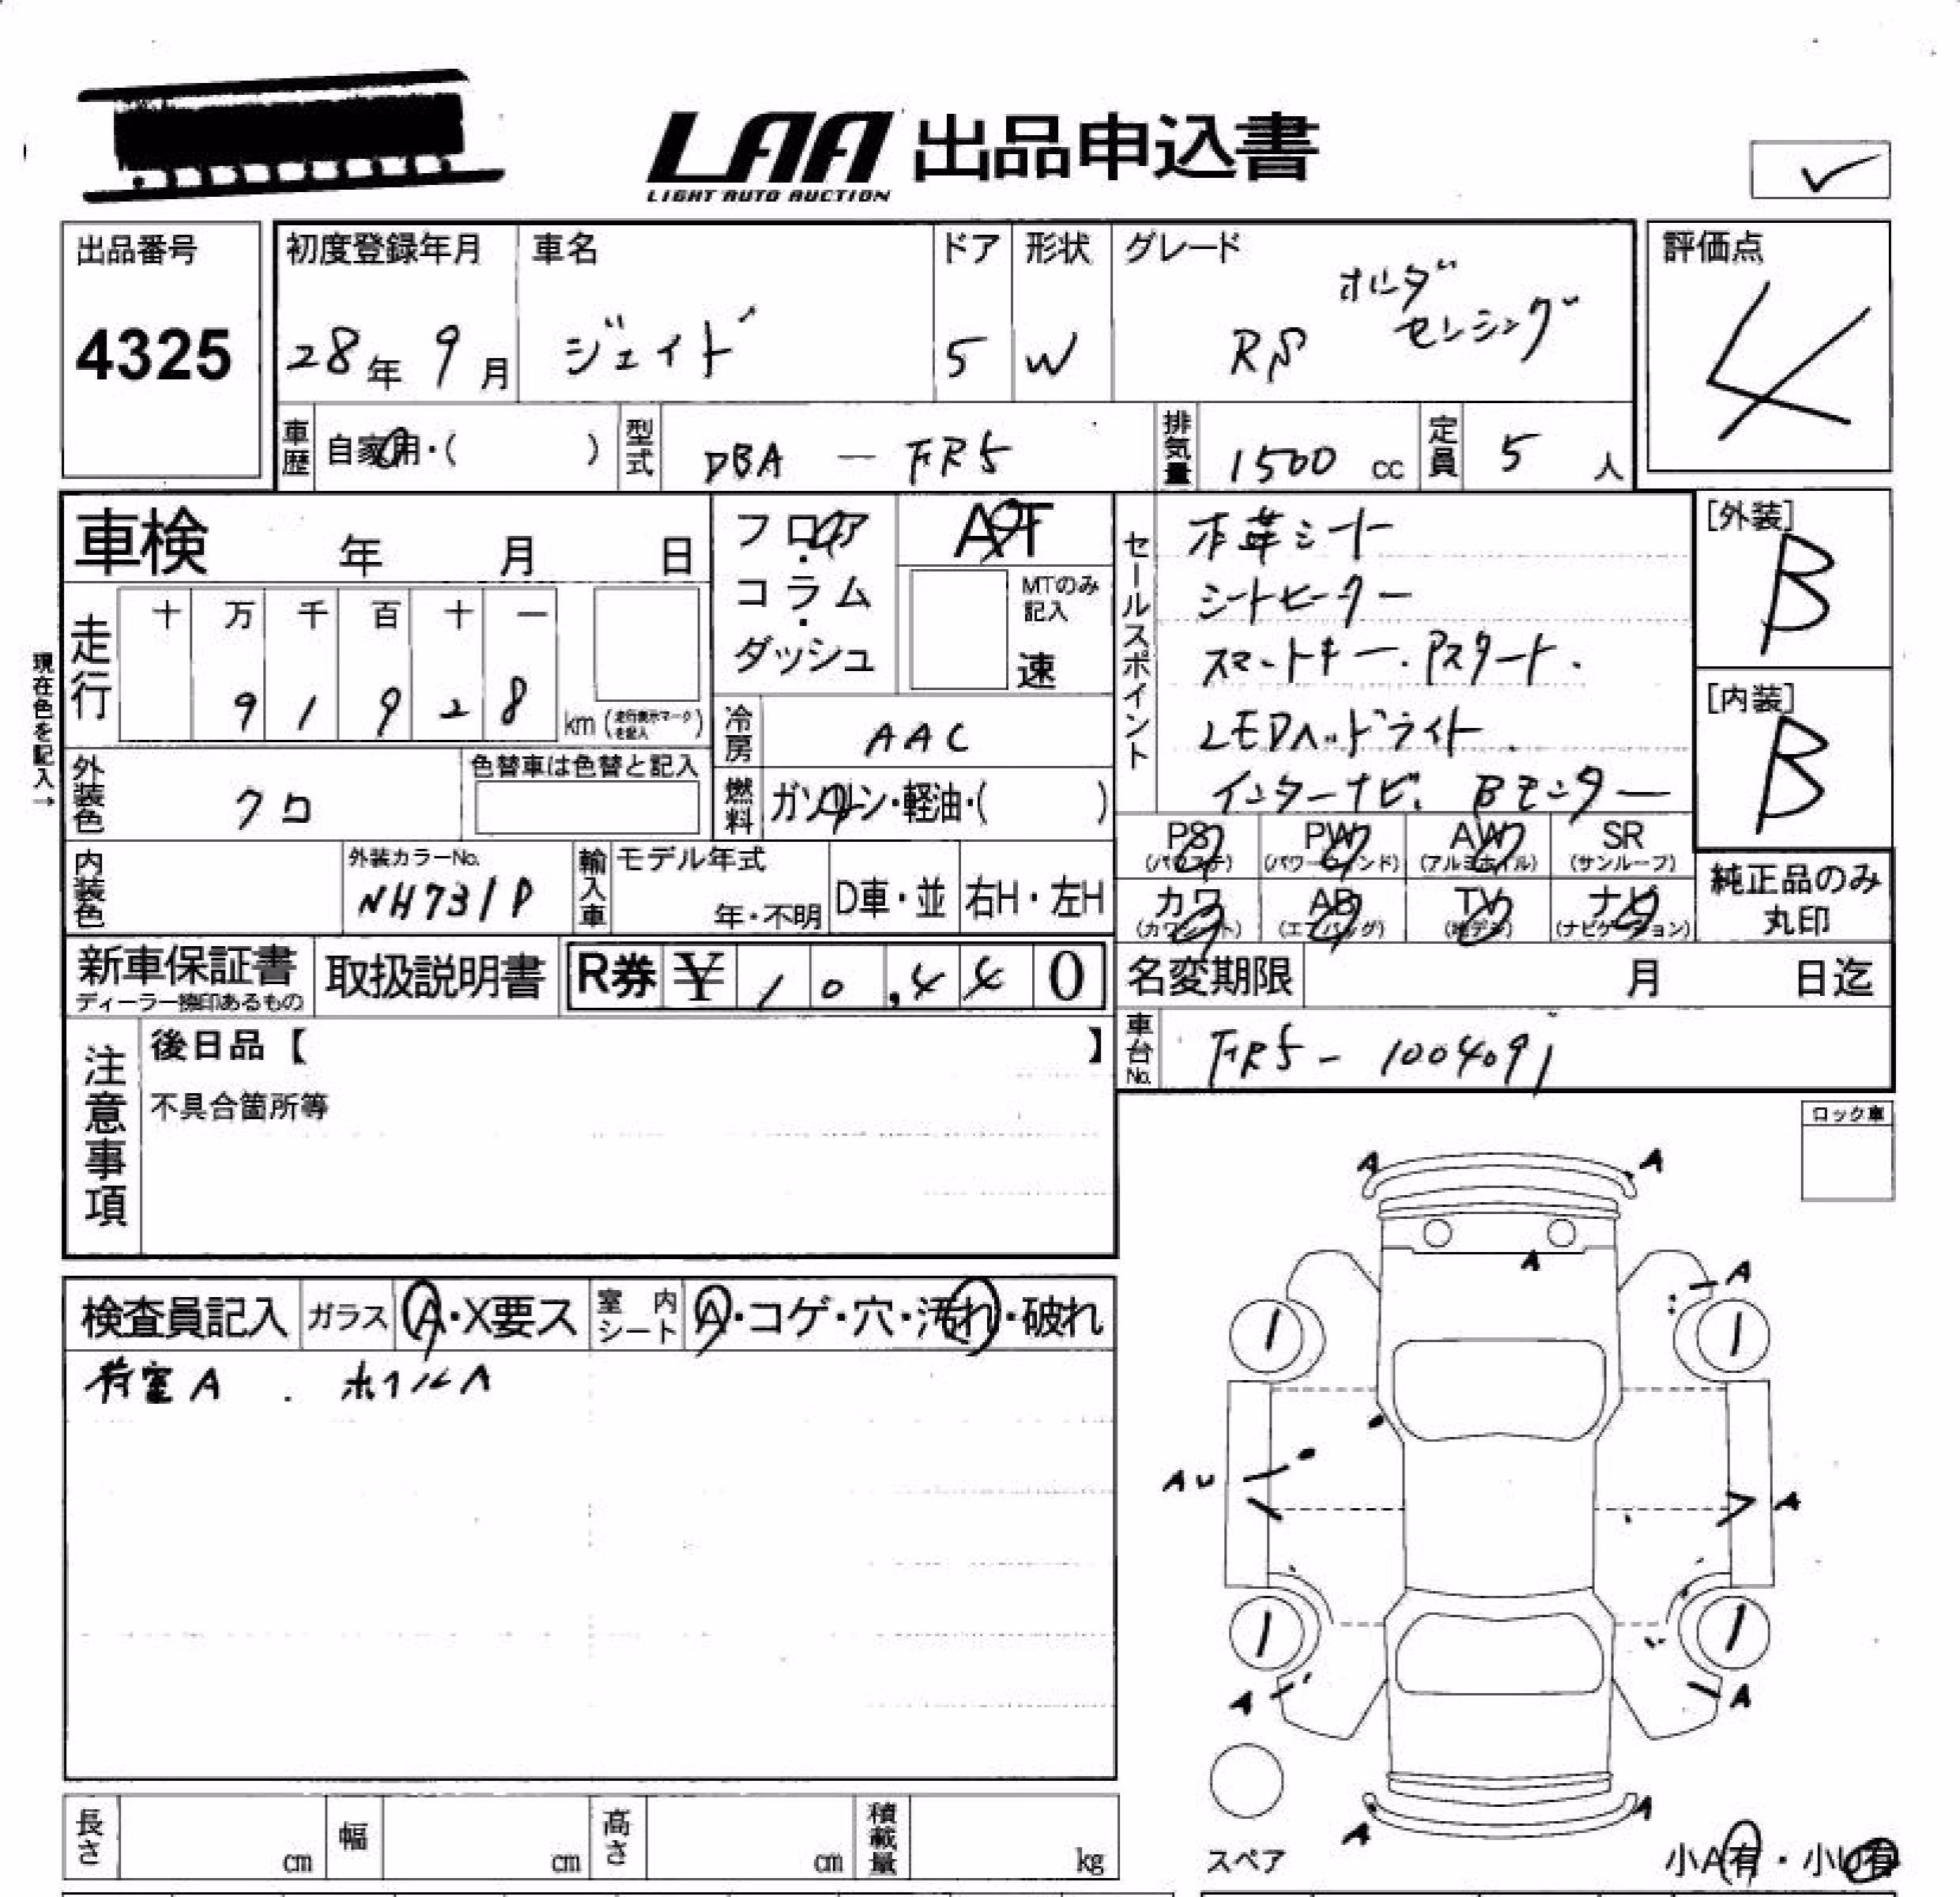 LAA 出品申込書
LIGHT AUTO AUCTION
出品番号
4325
初度登録年月
28年 9月
車名
ジェイド
ドア
5
形状
W
グレード
RS ホンダ
センシング
評価点
4
車歴
自家用・( )
型式
DBA - FR5
排気量
1500 cc
定員
5 人
車検 年 月 日
現在色を記入→
走行
十 万 千 百 十 一
9 1 9 2 8
km (走行表示マークを記入)
フロア
・
コラム
・
ダッシュ
AT
MTのみ
記入
速
冷房
AAC
燃料
ガソリン・軽油・( )
外装色
クロ
色替車は色替と記入
内装色
外装カラーNo.
NH731P
輸入車
モデル年式
年・不明
D車・並
右H・左H
セールスポイント
本革シート
シートヒーター
スマートキー.Pスタート.
LEDヘッドライト.
インターナビ. Bモニター
[外装]
B
[内装]
B
PS
(パワステ)
PW
(パワーウィンド)
AW
(アルミホイル)
SR
(サンルーフ)
カワ
(カワシート)
AB
(エアバッグ)
TV
(地デジ)
ナビ
(ナビゲーション)
純正品のみ
丸印
新車保証書
ディーラー捺印あるもの
取扱説明書
R券 ¥ 10,440
名変期限 月 日迄
車台No.
FR5-1004091
注意事項
後日品【 】
不具合箇所等
ロック車
検査員記入
ガラス
A・X要ス
室内シート
A・コゲ・穴・汚れ・破れ
荷室A . ホイルA
A A
A
A
AU
A
A
A
A
A
スペア
小A有・小U有
長さ cm
幅 cm
高さ cm
積載量 kg